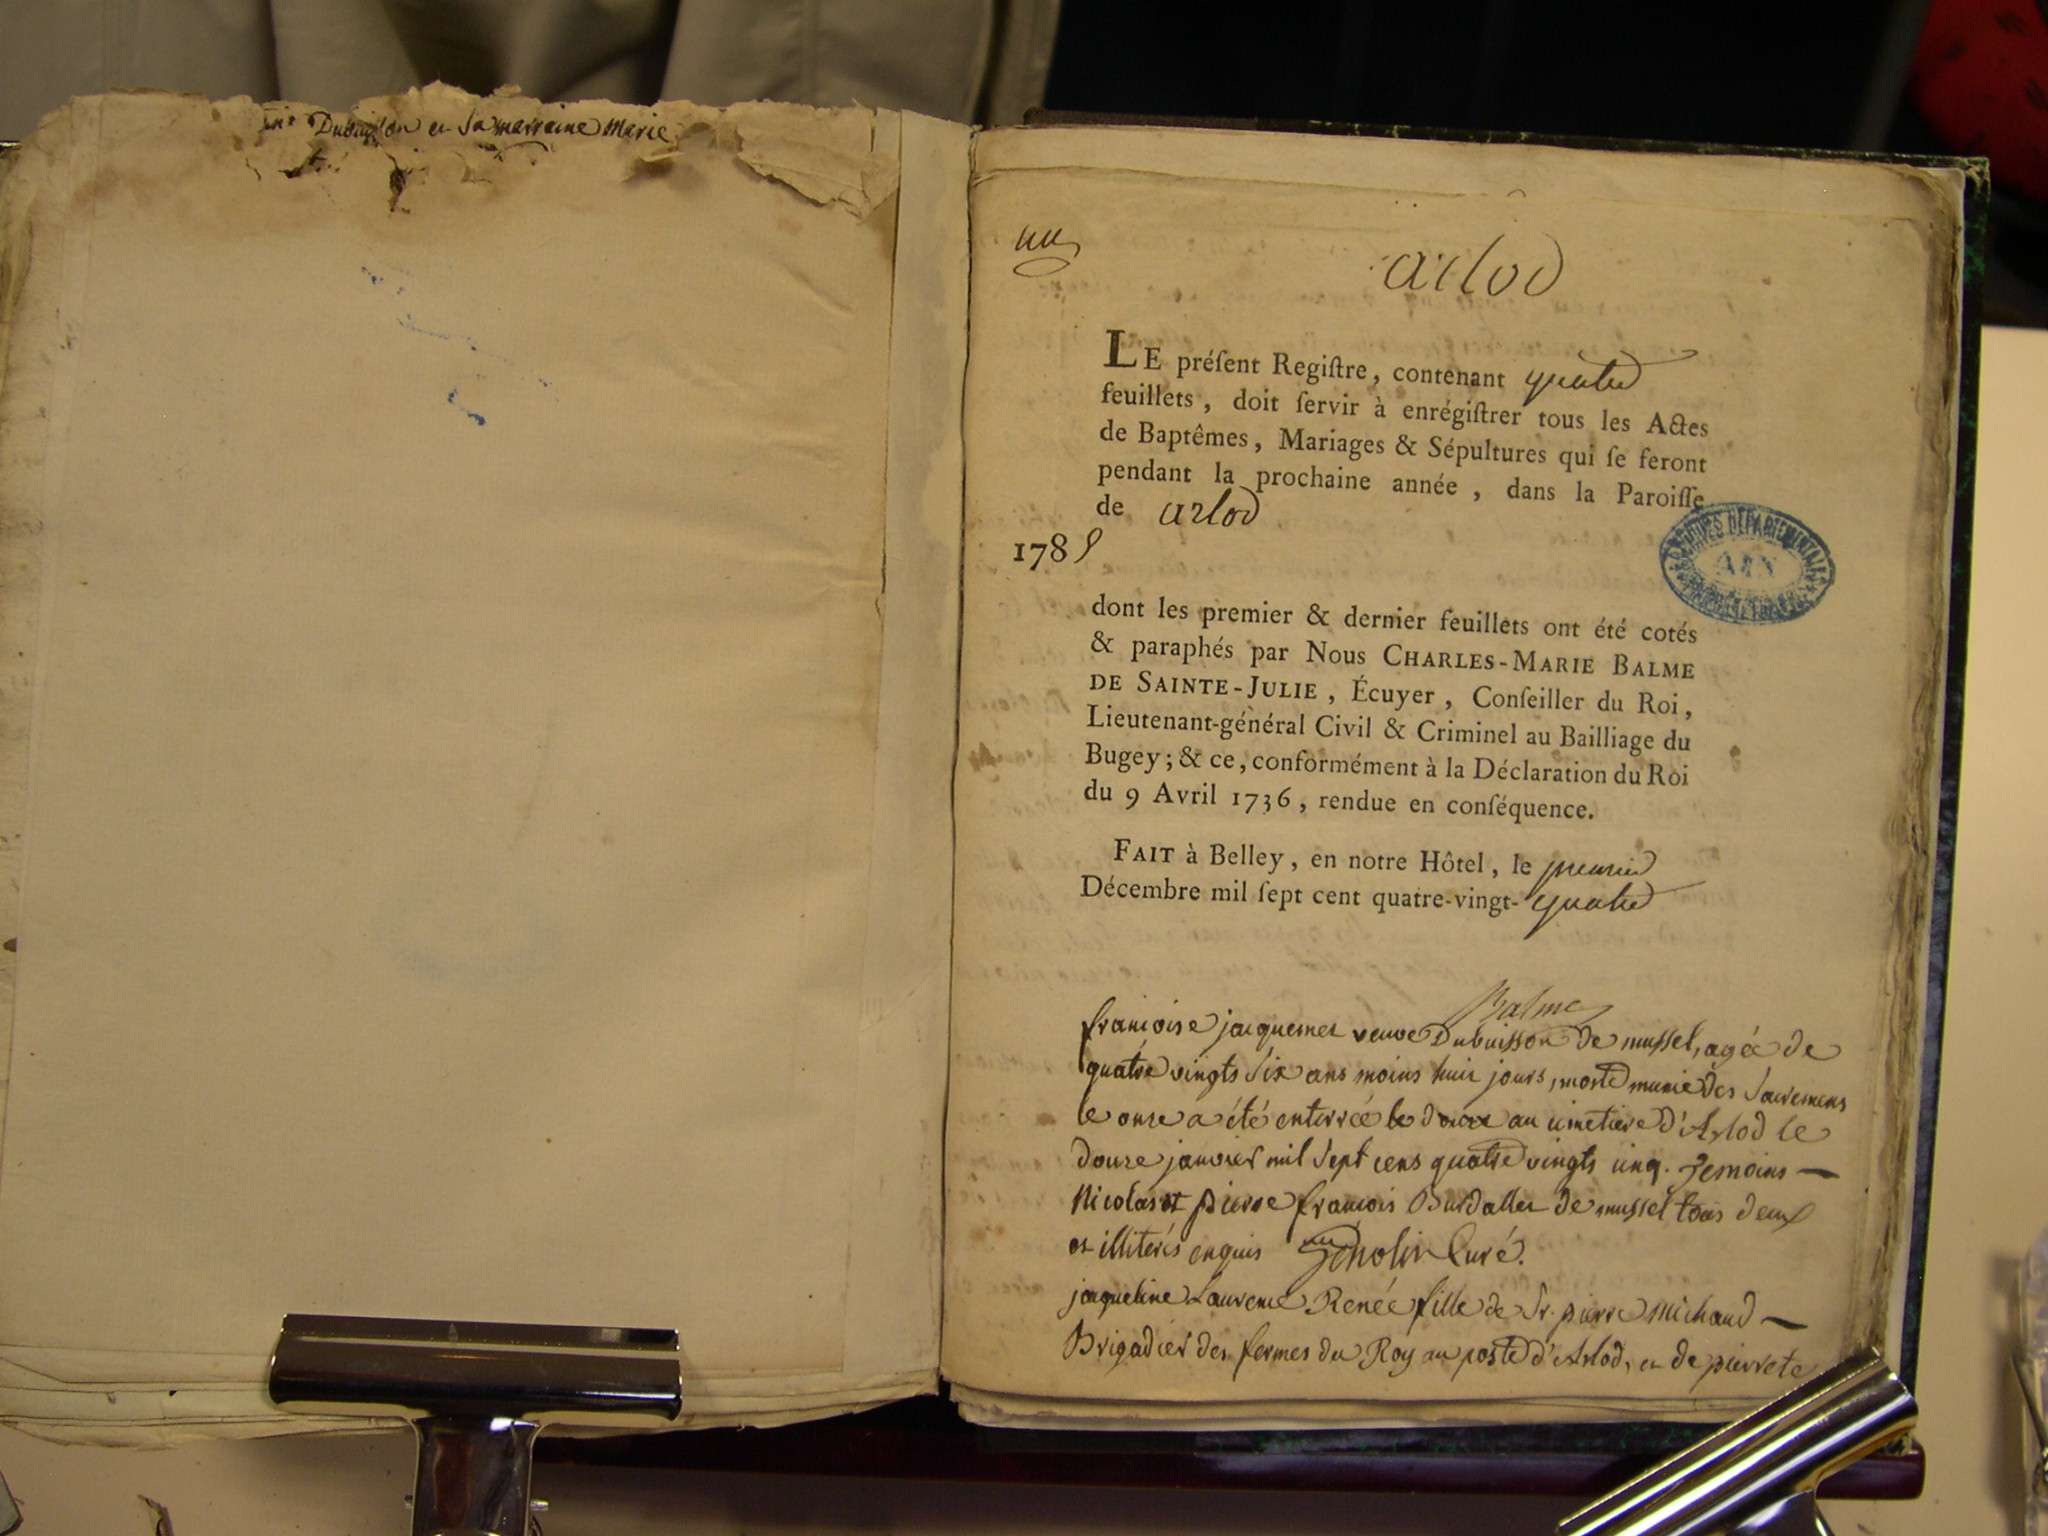 Dubuisson et sa marraine Marie
un
arlod
LE préſent Regiſtre, contenant quatre
feuillets, doit ſervir à enrégiſtrer tous les Actes
de Baptêmes, Mariages & Sépultures qui ſe feront
pendant la prochaine année, dans la Paroiſſe
de arlod
1785
ARCHIVES DÉPARTEMENTALES
AIN
dont les premier & dernier feuillets ont été cotés
& paraphés par Nous CHARLES-MARIE BALME
DE SAINTE-JULIE, Écuyer, Conſeiller du Roi,
Lieutenant-général Civil & Criminel au Bailliage du
Bugey; & ce, conformément à la Déclaration du Roi
du 9 Avril 1736, rendue en conſéquence.
FAIT à Belley, en notre Hôtel, le premier
Décembre mil ſept cent quatre-vingt-quatre
Balme
francoise jacquemet veuve Dubuisson de mussel, agée de
quatre vingts six ans moins huit jours, morte munie des sacremens
le onze a été enterrée le douze au cimetiere d'Arlod le
douze janvier mil sept cens quatre vingts cinq. Temoins
Nicolas et pierre francois Burdallet de mussel tous deux
et illiterés enquis Curé.
jaqueline Laurence Renée fille de Sr. pierre michaud
Brigadier des fermes du Roy au poste d'Arlod, et de pierrete